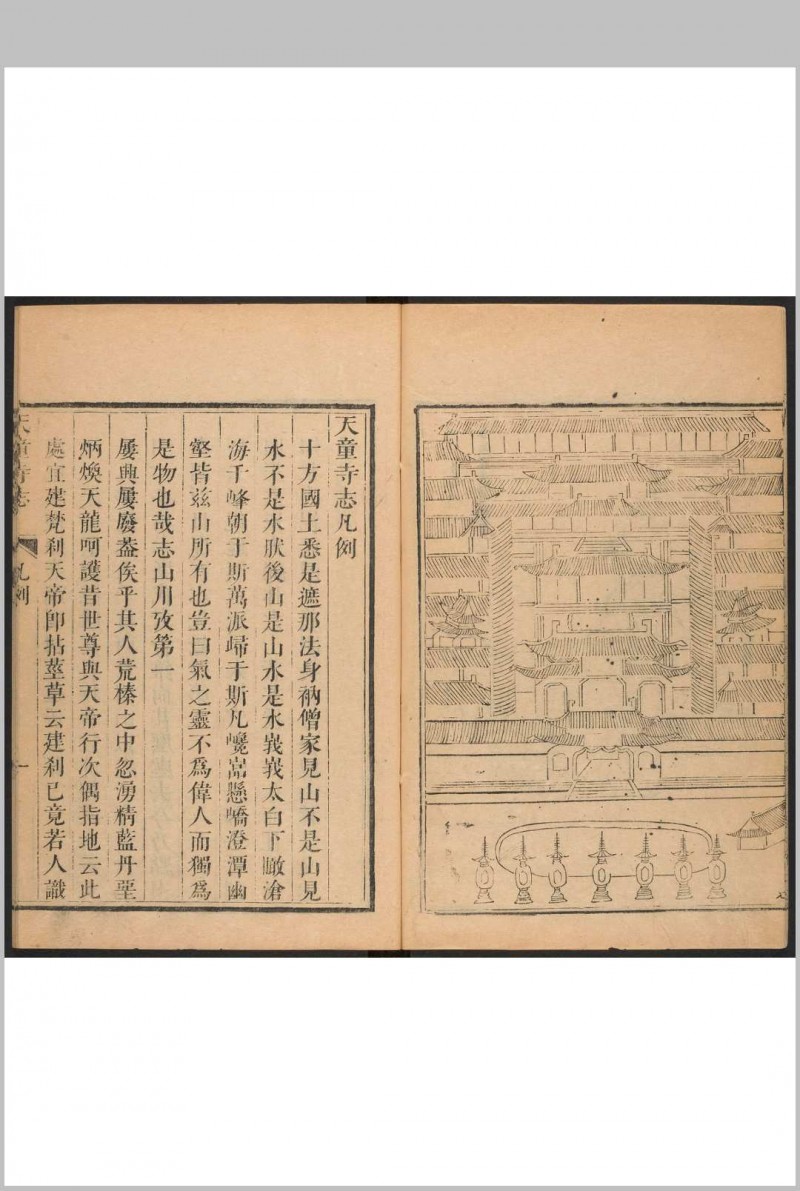 天童寺志凡例
十方國土悉是遮那法身衲僧家見山不是山見
水不是水肰後山是山水是水峩峩太白下瞰滄
海千峰朝于斯萬派歸于斯凡巉巖懸嶠澄潭幽
壑皆茲山所有也豈曰氣之靈不爲偉人而獨爲
是物也哉志山川攷第一
屢興屢廢葢俟乎其人荒榛之中忽湧精藍丹堊
炳煥天龍呵護昔世尊與天帝行次偶指地云此
處宜建梵刹天帝卽拈莖草云建刹已竟若人識
天童寺志 凡例 一